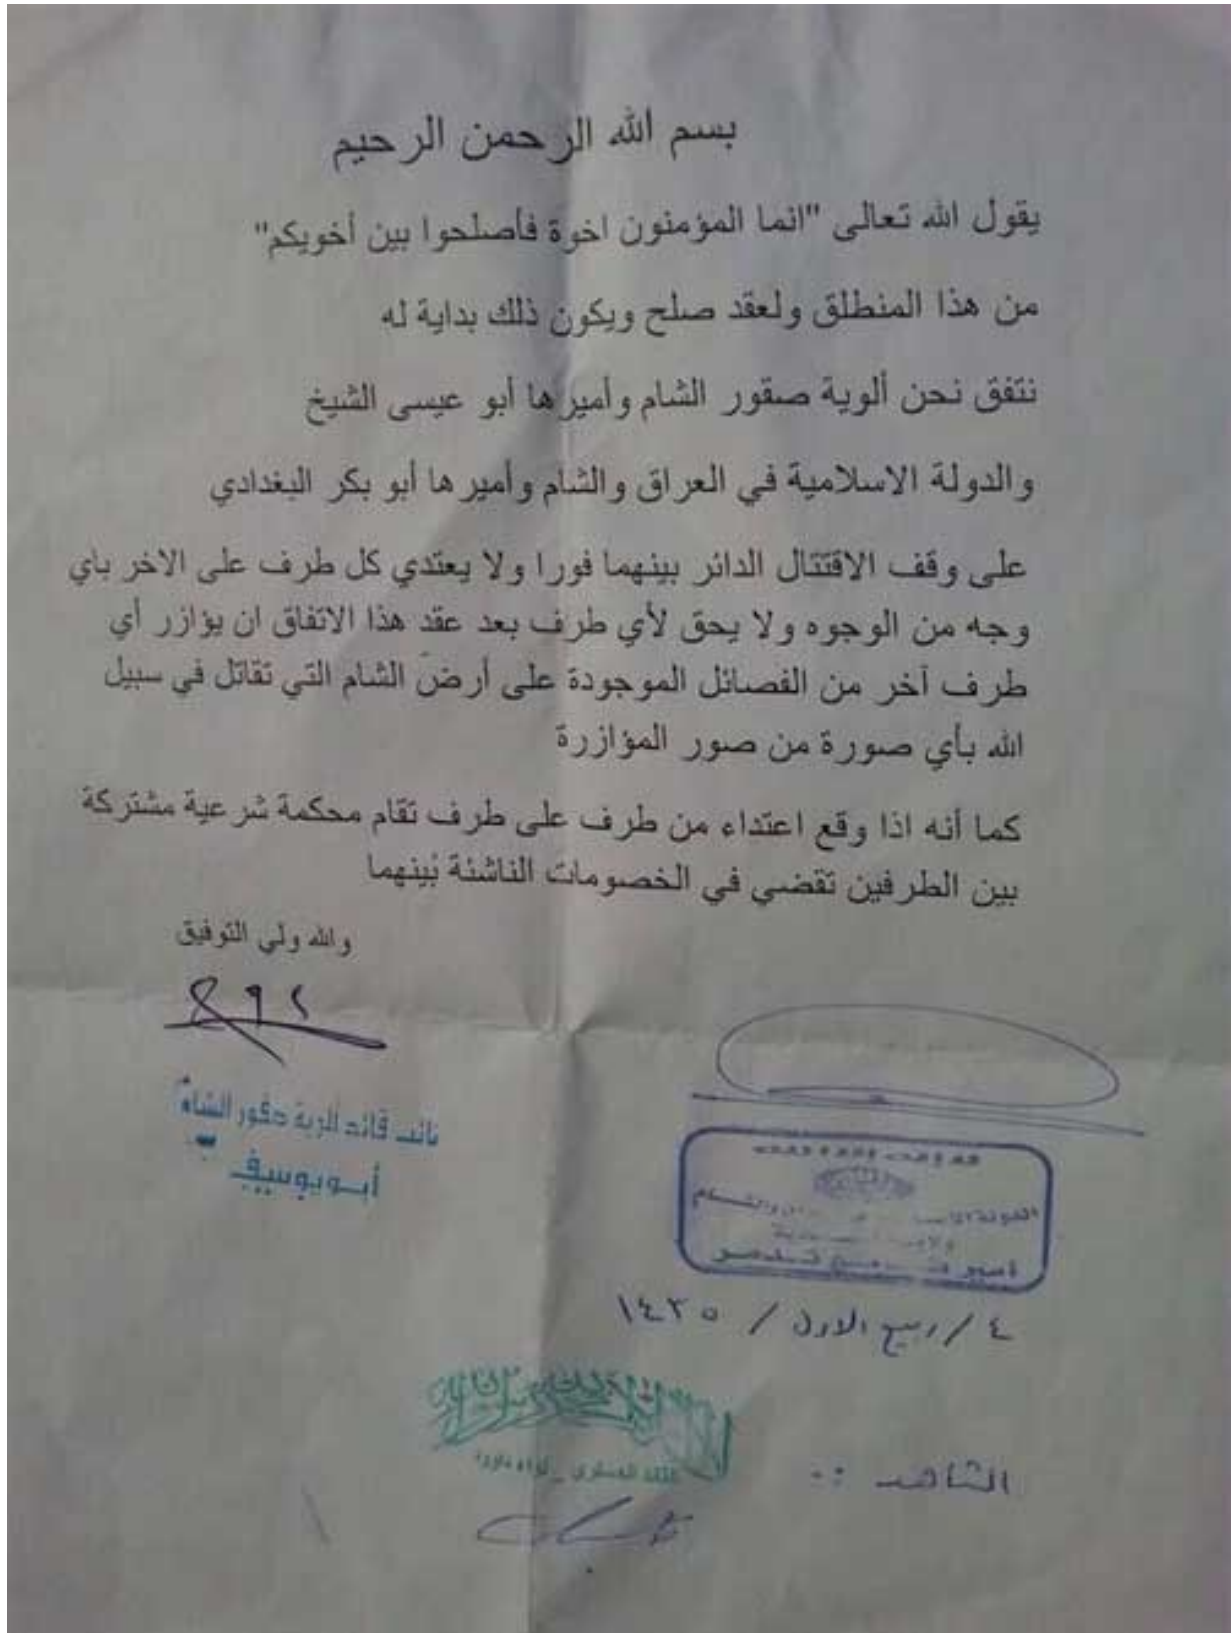 بسم الله الرحمن الرحيم
يقول الله تعالى "انما المؤمنون اخوة فأصلحوا بين أخويكم"
من هذا المنطلق ولعقد صلح ويكون ذلك بداية له
نتفق نحن ألوية صقور الشام وأميرها أبو عيسى الشيخ
والدولة الاسلامية في العراق والشام وأميرها أبو بكر البغدادي
على وقف الاقتتال الدائر بينهما فورا ولا يعتدي كل طرف على الاخر باي
وجه من الوجوه ولا يحق لأي طرف بعد عقد هذا الاتفاق ان يؤازر أي
طرف آخر من الفصائل الموجودة على أرض الشام التي تقاتل في سبيل
الله بأي صورة من صور المؤازرة
كما أنه اذا وقع اعتداء من طرف على طرف تقام محكمة شرعية مشتركة
بين الطرفين تقضي في الخصومات الناشئة بينهما
والله ولي التوفيق
نائب قائد ألوية صقور الشام
أبو يوسف
والشام
أمير تدمر
٤ / ربيع الاول / ١٤٣٥
الشاهد :